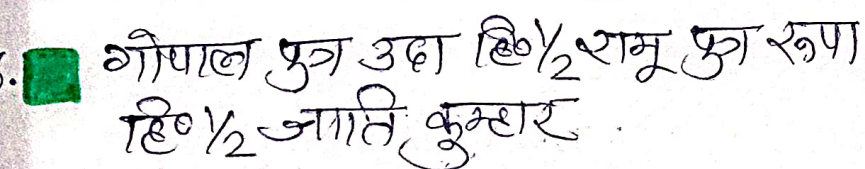 गोपाल पुत्र उदा हि० 1/2 रामू पुत्र रूपा
हि० 1/2 जाति कुम्हार